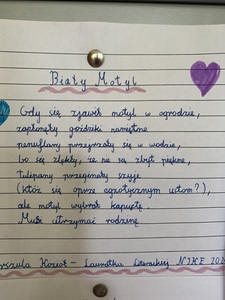 Biały Motyl
Gdy się zjawił motyl w ogrodzie,
zapłonęły goździki namiętne
pomyślany przejrzały się w wodzie,
bo się zlękły, że nie są zbyt piękne,
tulipany przegięły szyje
(któż się oprze egzotycznym ustom?),
ale motyl wybrał kapustę.
Musi utrzymać rodzinę.
rszula Kozioł - Laureatka Literackiej NIKE 202